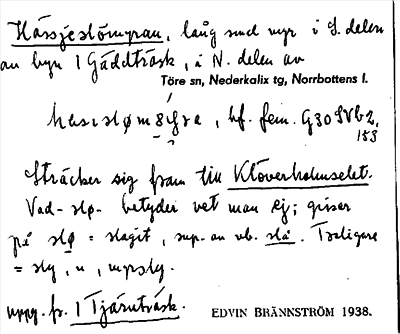 Hässjeslömyran, lång smal myr i S. delen
av byn 1 Gäddträsk, i N. delen av
Töre sn, Nederkalix tg, Norrbottens l.
, bf. fem. G30 SVb2,
153
Sträcker sig fram till Klöverholmselet.
Vad -slø- betyder vet man ej; gissar
på slø = slaget, sup. av vb. slå. Troligare
= sly, n, myrsly.
uppg. fr. 1 Tjärnträsk.
EDVIN BRÄNNSTRÖM 1938.